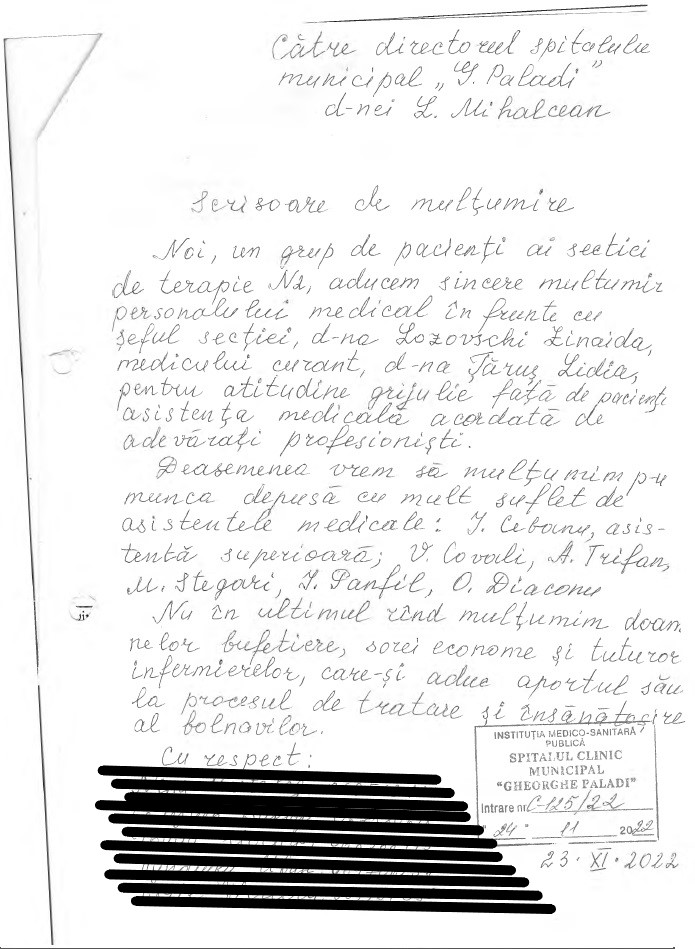 Către directorul spitalului
municipal „G. Paladi”
d-nei L. Mihalcean
Scrisoare de mulțumire
Noi, un grup de pacienți ai secției
de terapie N2, aducem sincere multumir
personalului medical în frunte cu
șeful secției, d-na Lozovschi Zinaida,
medicului curant, d-na Țăruș Lidia,
pentru atitudine grijulie față de pacienți
asistența medicală acordată de
adevărați profesioniști.
Deasemenea vrem să mulțumim p-u
munca depusă cu mult suflet de
asistentele medicale: I. Cebanu, asis-
tentă superioară; V. Covali, A. Trifan,
M. Stegari, I. Panfil, O. Diaconu
Nu în ultimul rînd mulțumim doam
nelor bufetiere, sorei econome și tuturor
infermierelor, care-și aduc aportul său
la procesul de tratare și însănătoșire
al bolnavilor.
Cu respect:
INSTITUȚIA MEDICO-SANITARĂ
PUBLICĂ
SPITALUL CLINIC
MUNICIPAL
“GHEORGHE PALADI”
Intrare nr. C-125/22
“24” 11 2022
23. XI. 2022